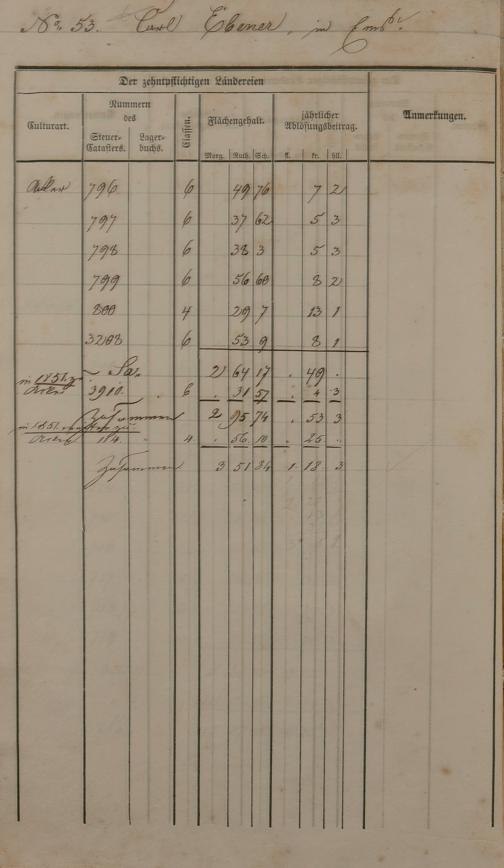 No. 53. Carl Ebener, in Ems.
Der zehntpflichtigen Ländereien
Culturart. Nummern des Classen. Flächengehalt. jährlicher Ablösungsbeitrag. Anmerkungen.
Steuer-Catasters. Lager-buchs.
Morg. Ruth. Sch. fl. kr. hll.
Acker 796 6 49 76 7 2
797 6 37 62 5 3
798 6 38 3 5 3
799 6 56 60 8 2
800 4 29 7 13 1
3208 6 53 9 8 1
Sa. 2 64 17 . 49 .
in 1851
Acker 3910. . 6 . 31 57 . 4 3
Zusammen 2 95 74 . 53 3
in 1851 zu
Acker 184. 4 . 56 10 . 25 .
Zusammen 3 51 84 1 18 3